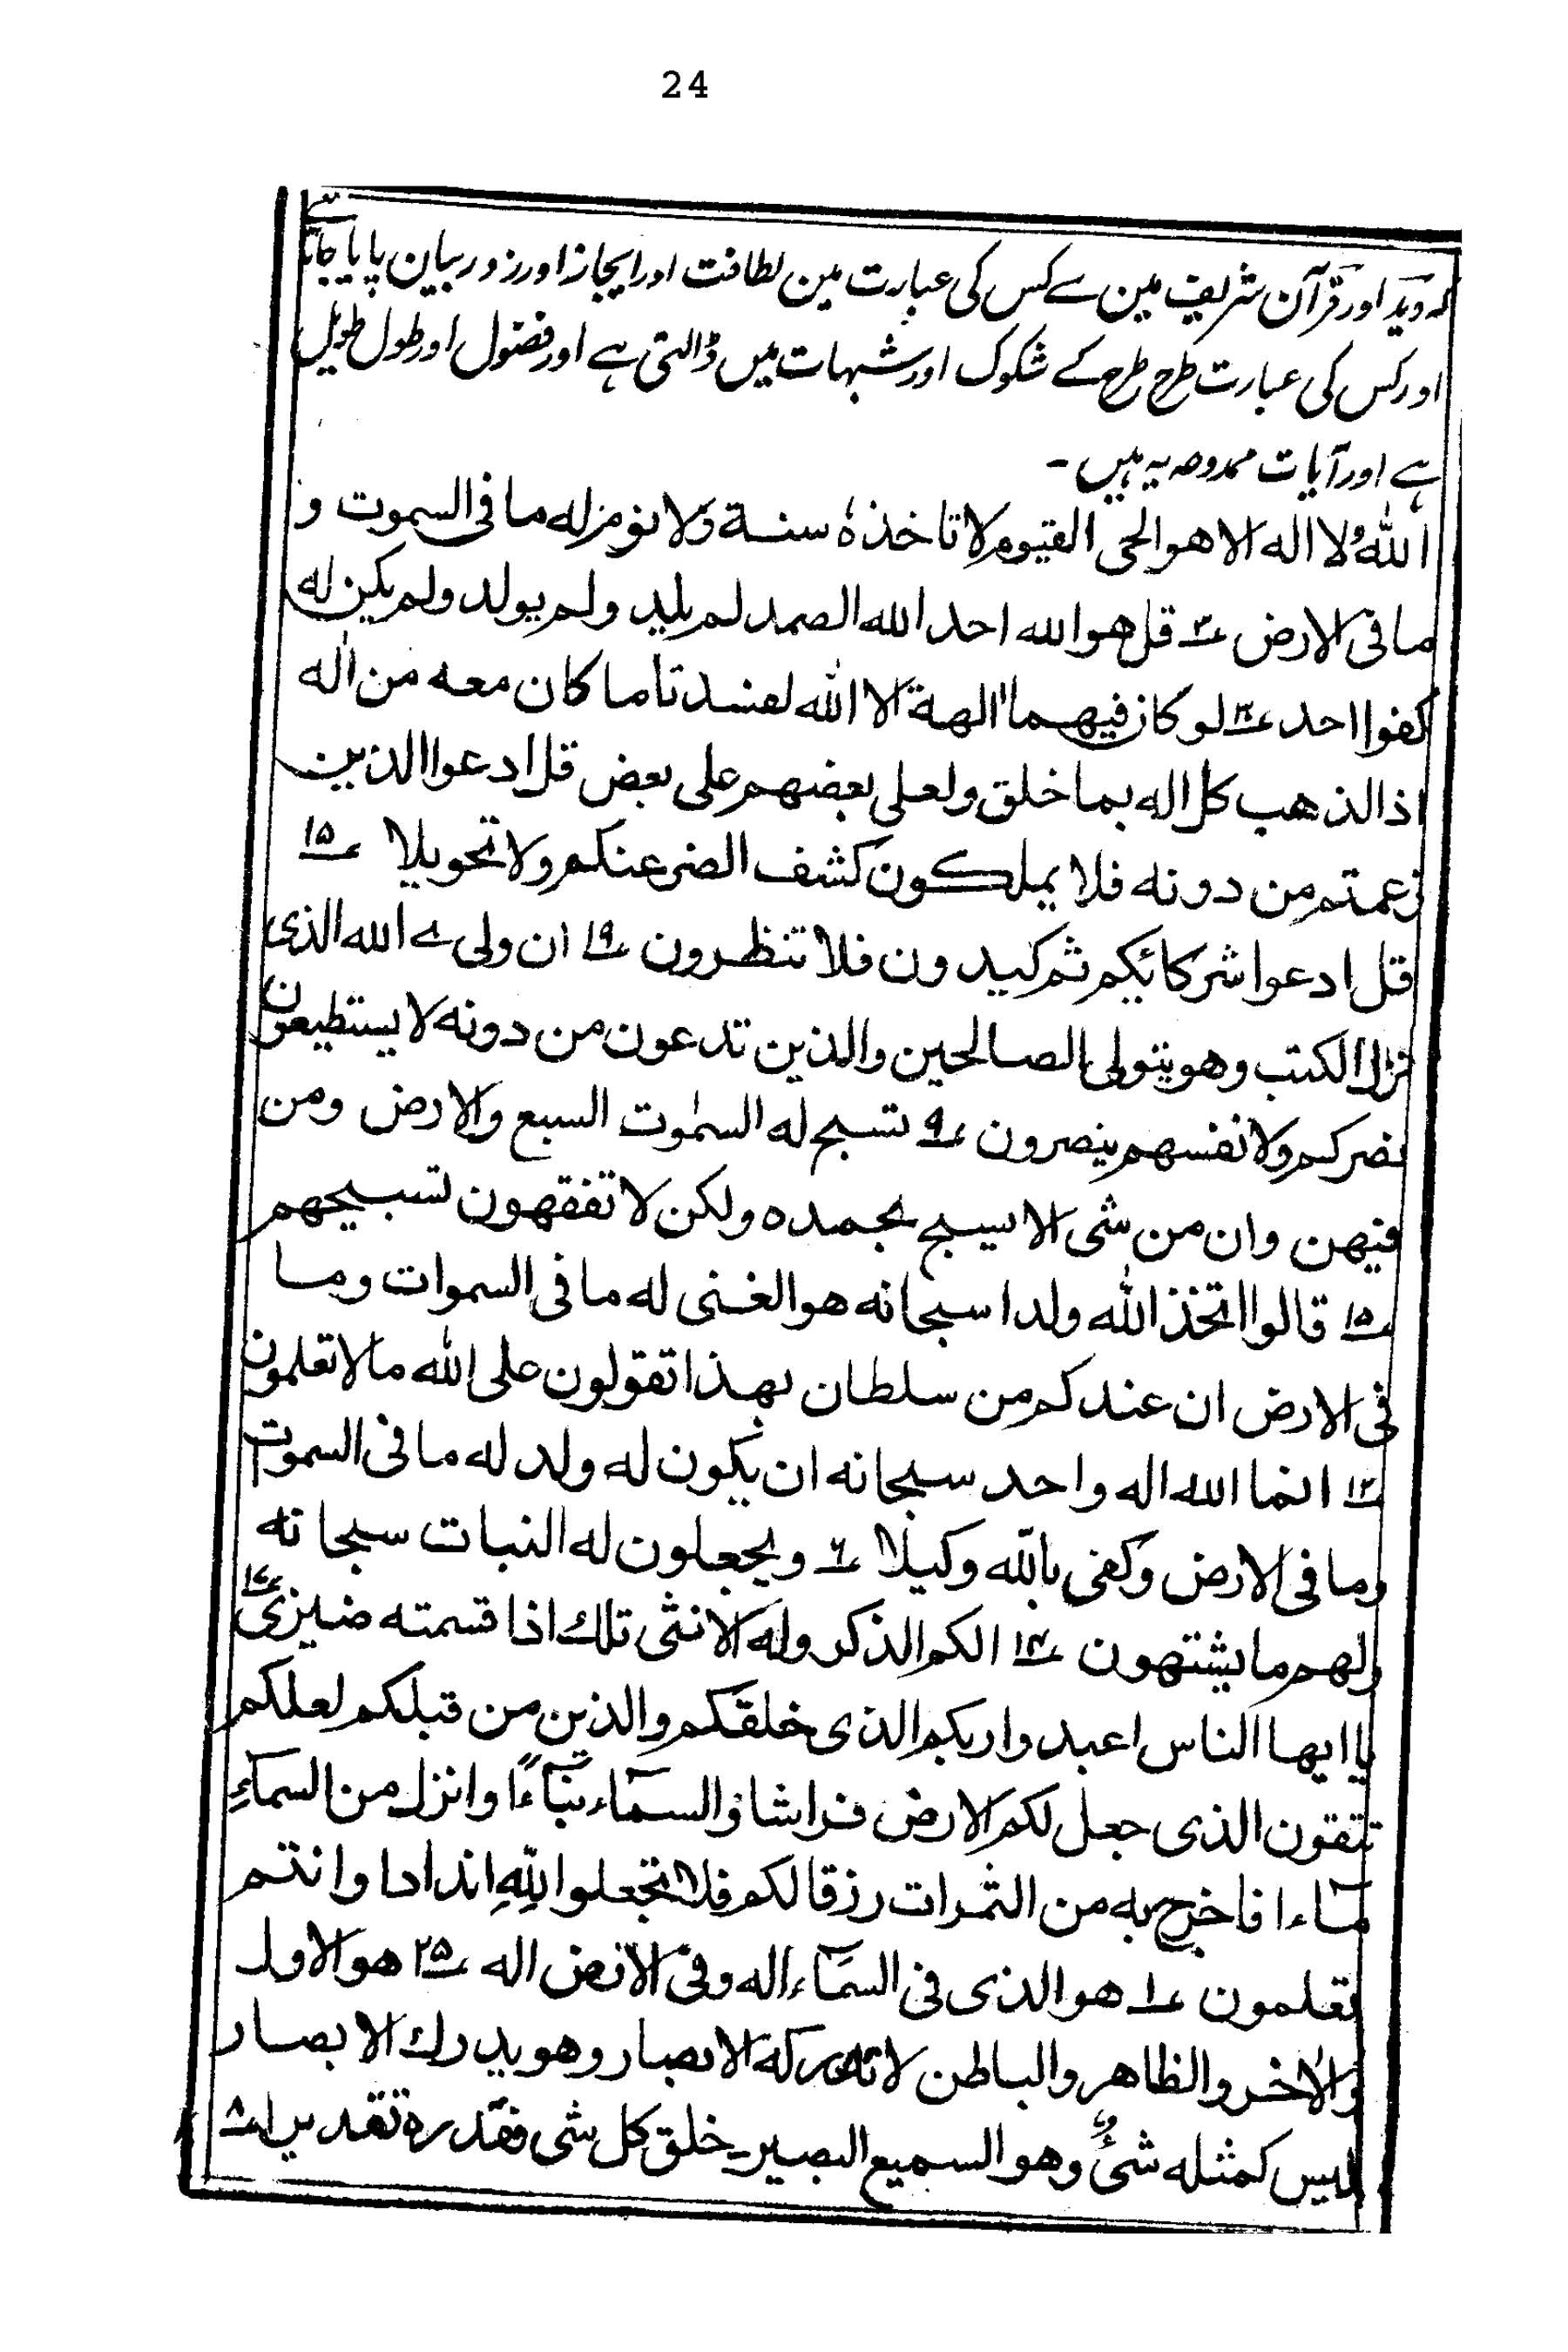 24
کہ وید اور قرآن شریف مین سے کس کی عبارت مین لطافت اور ایجاز اور زور بیان پایا جاتا ہے
اور کس کی عبارت طرح طرح کے شکوک اور شبہات میں ڈالتی ہے اور فضول اور طول طویل
ہے اور آیات ممدوحہ یہ ہیں ۔
اللهُ لا اله الا هو الحی القیوم لا تاخذهٗ سنة وّلا نوم له ما فی السموت و
ما فی الارض ؁۳ قل هو الله احد الله الصمد لم یلد ولم یولد ولم یکن له
کفوا احد ؁۳۰ لو کان فیهما الهة الا الله لفسدتا ما کان معه من اله
اذا لذهب کل اله بما خلق ولعلی بعضهم علی بعض قل ادعوا الذین
زعمتم من دونه فلا یملکون کشف الضر عنکم ولا تحویلا ؁۱۵
قل ادعوا شرکائکم ثم کیدون فلا تنظرون ؁۹ا ان ولی ے الله الذی
نزل الکتب وهو یتولی الصالحین والذین تدعون من دونه لا یستطیعون
نصرکم ولا انفسهم ینصرون ؁۹ تسبح له السمٰوت السبع والارض ومن
فیهن وان من شی الا یسبح بحمده ولکن لا تفقهون تسبیحهم
؁۱۵ قالوا اتخذ الله ولدا سبحانه هو الغنی له ما فی السموات وما
فی الارض ان عندکم من سلطان بهذا تقولون علی الله ما لا تعلمون
؁۱۲ انما الله اله واحد سبحانه ان یکون له ولد له ما فی السموت
وما فی الارض وکفی بالله وکیلا ؁۶ ویجعلون له النبات سبحانه
ولهم ما یشتهون ؁۱۴ الکم الذکر وله الانثی تلك اذا قسمته ضیزی ؁۲۷
یا ایها الناس اعبدوا ربکم الذی خلقکم والذین من قبلکم لعلکم
تتقون الذی جعل لکم الارض فراشا والسمآء بنآءً وانزل من السمآءِ
مآءا فاخرج به من الثمرات رزقا لکم فلا تجعلوا للهِ اندادا وانتم
تعلمون ؁ا هو الذی فی السمآء اله وفی الارض اله ؁۲۵ هو الاول
والاخر والظاهر والباطن لا تدرکه الابصار وهو یدرك الابصار
لیس کمثله شیٌٔ وهو السمیع البصیر۔ خلق کل شی فقدره تقدیرا ؁۱۸